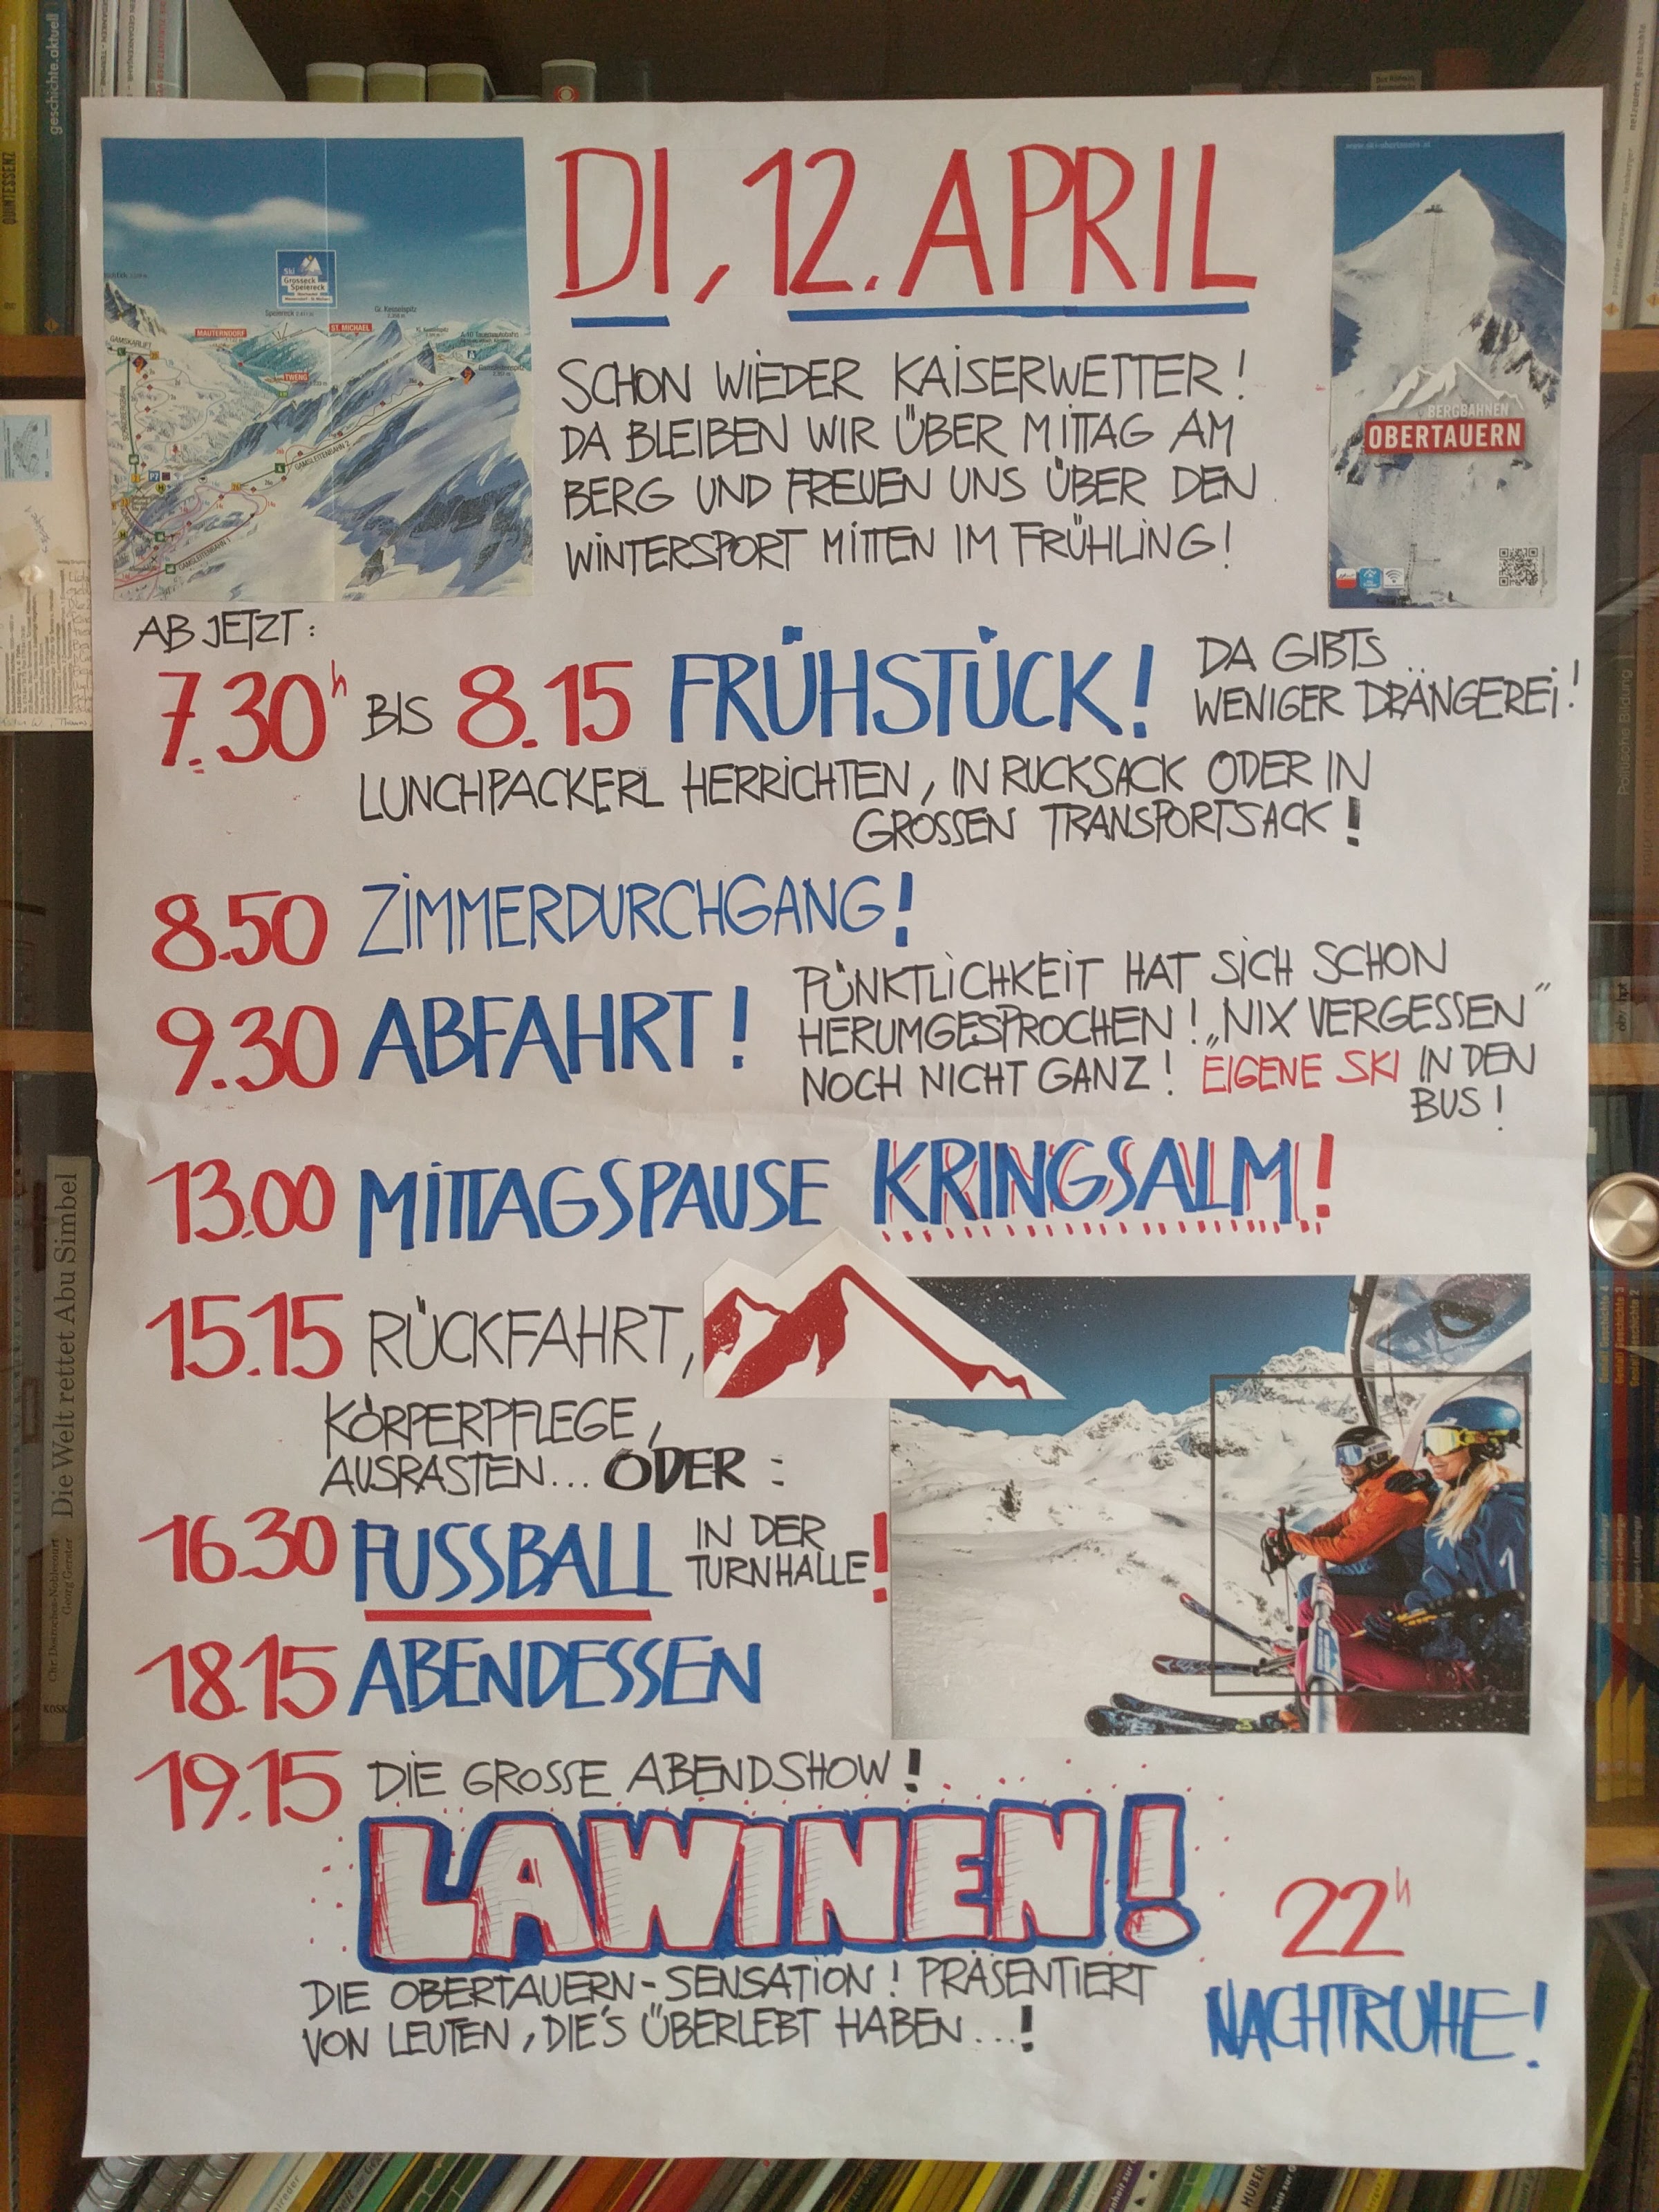 DI, 12. APRIL
SCHON WIEDER KAISERWETTER!
DA BLEIBEN WIR ÜBER MITTAG AM
BERG UND FREUEN UNS ÜBER DEN
WINTERSPORT MITTEN IM FRÜHLING!
Ski
Grosseck
Speiereck
MAUTERNDORF
ST. MICHAEL
TWENG
GAMSLEITENBAHN 2
GAMSLEITENBAHN 1
www.ski-obertauern.at
BERGBAHNEN
OBERTAUERN
AB JETZT:
7.30h BIS 8.15 FRÜHSTÜCK!
DA GIBTS
WENIGER DRÄNGEREI!
LUNCHPACKERL HERRICHTEN, IN RUCKSACK ODER IN
GROSSEN TRANSPORTSACK!
8.50 ZIMMERDURCHGANG!
9.30 ABFAHRT!
PÜNKTLICHKEIT HAT SICH SCHON
HERUMGESPROCHEN! „NIX VERGESSEN"
NOCH NICHT GANZ! EIGENE SKI IN DEN
BUS!
13.00 MITTAGSPAUSE KRINGSALM!
15.15 RÜCKFAHRT,
KÖRPERPFLEGE,
AUSRASTEN... ODER:
16.30 FUSSBALL IN DER
TURNHALLE!
18.15 ABENDESSEN
19.15 DIE GROSSE ABENDSHOW!
LAWINEN!
DIE OBERTAUERN-SENSATION! PRÄSENTIERT
VON LEUTEN, DIE'S ÜBERLEBT HABEN...!
22h
NACHTRUHE!
QUINTESSENZ
geschichte.aktuell
Die Welt rettet Abu Simbel
Georg Gerster
Politische Bildung